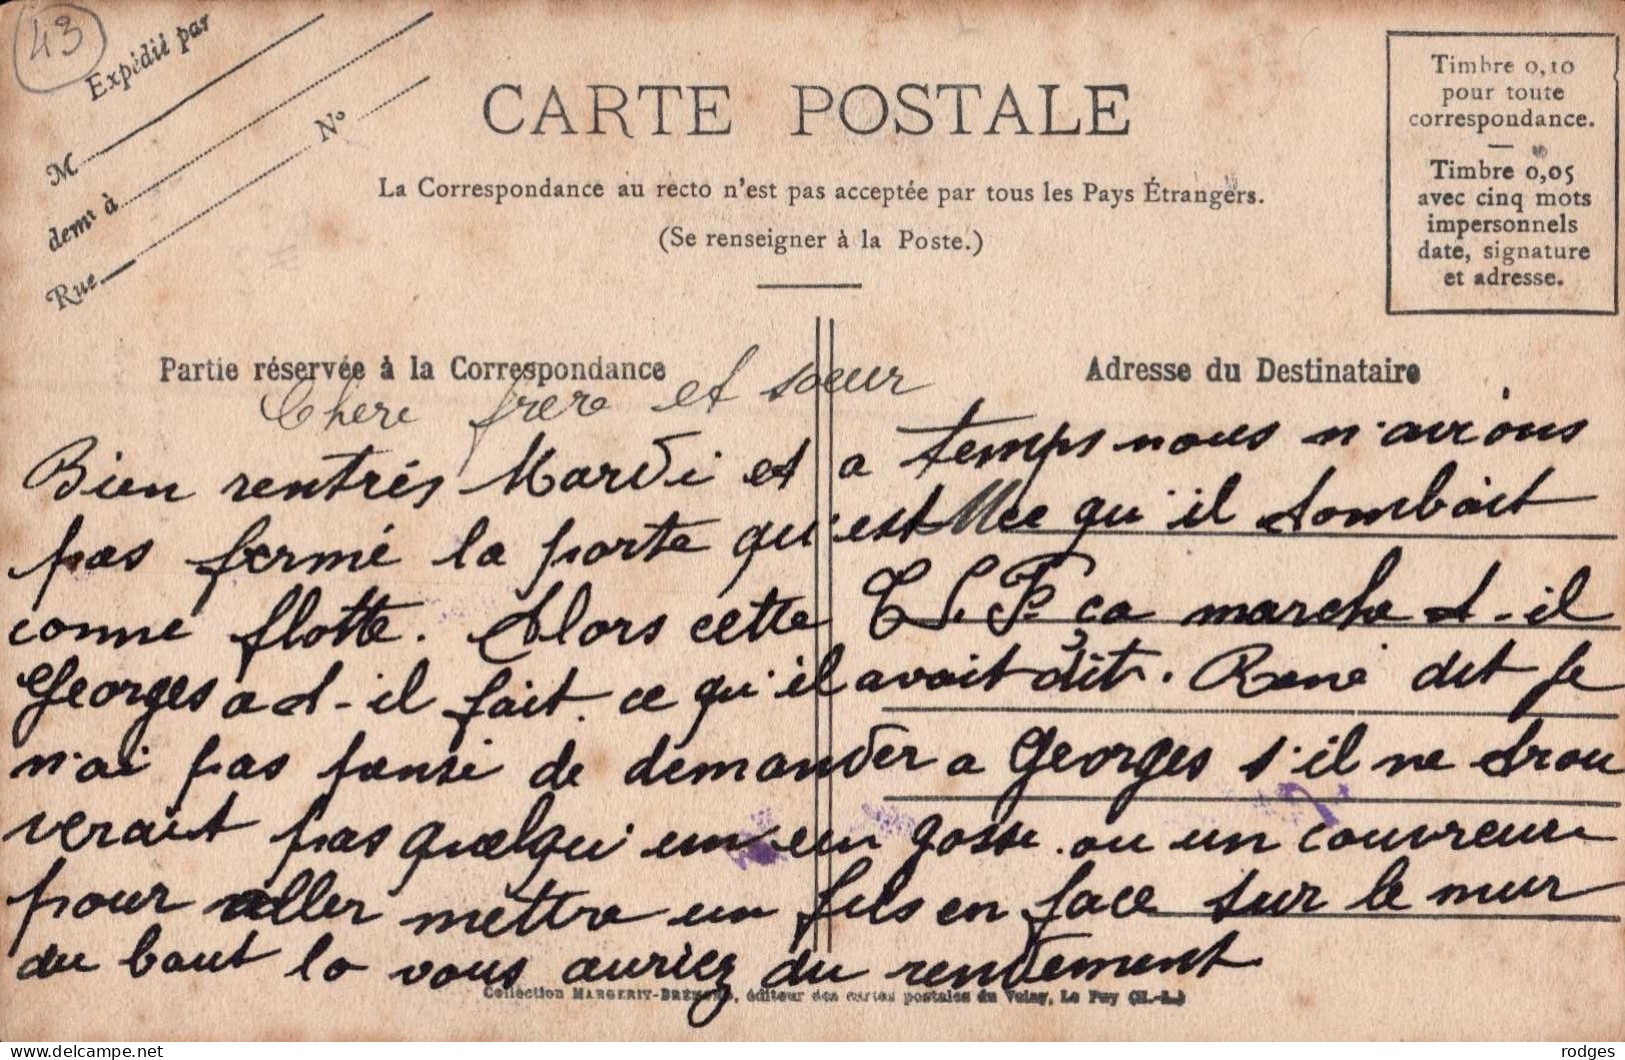 43
Expédié par
M
demt à
Rue Nº
CARTE POSTALE
La Correspondance au recto n'est pas acceptée par tous les Pays Étrangers.
(Se renseigner à la Poste.)
Timbre 0,10
pour toute
correspondance.
Timbre 0,05
avec cinq mots
impersonnels
date, signature
et adresse.
Partie réservée à la Correspondance
Adresse du Destinataire
Chere frere et sœur
Bien rentrés Mardi et a temps nous n'avions
pas fermé la porte qu'est qu'il tombait
comme flotte. Alors cette T.S.F. ça marche t-il
Georges a t-il fait ce qu'il avait dit. René dit je
n'ai pas pensé de demander a Georges s'il ne trou
verait pas quelqu'un un gosse ou un couvreur
pour aller mettre un fils en face sur le mur
du baut la vous auriez du rendement
Collection MARGERIT-BRÉMOND, éditeur des cartes postales du Velay, Le Puy (H.-L.)
rodges